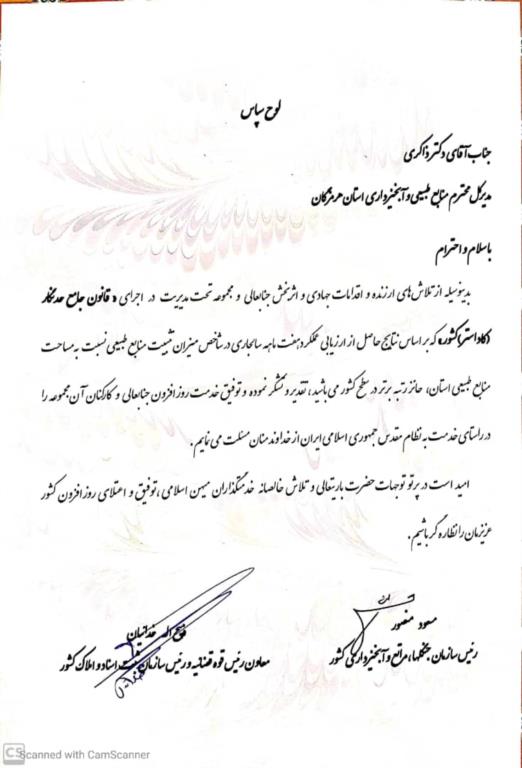 لوح سپاس
جناب آقای دکتر ذاکری
مدیرکل محترم منابع طبیعی و آبخیزداری استان هرمزگان
باسلام و احترام
بدینوسیله از تلاش‌های ارزنده و اقدامات جهادی و اثربخش جنابعالی و مجموعه تحت مدیریت در اجرای «قانون جامع حدنگار
(کاداستر) کشور» که بر اساس نتایج حاصل از ارزیابی عملکرد هفت ماهه سالجاری در شاخص میزان تثبیت منابع طبیعی نسبت به مساحت
منابع طبیعی استان، حائز رتبه برتر در سطح کشور می‌باشید، تقدیر و تشکر نموده و توفیق خدمت روزافزون جنابعالی و کارکنان آن مجموعه را
در راستای خدمت به نظام مقدس جمهوری اسلامی ایران از خداوند منان مسئلت می‌نمایم.
امید است در پرتو توجهات حضرت باریتعالی و تلاش خالصانه خدمتگذاران میهن اسلامی، توفیق و اعتلای روزافزون کشور
عزیزمان را نظاره گر باشیم.
مسعود منصور
رئیس سازمان جنگلها، مراتع و آبخیزداری کشور
خدائیان
معاون رئیس قوه قضائیه و رئیس سازمان ثبت اسناد و املاک کشور
CS Scanned with CamScanner